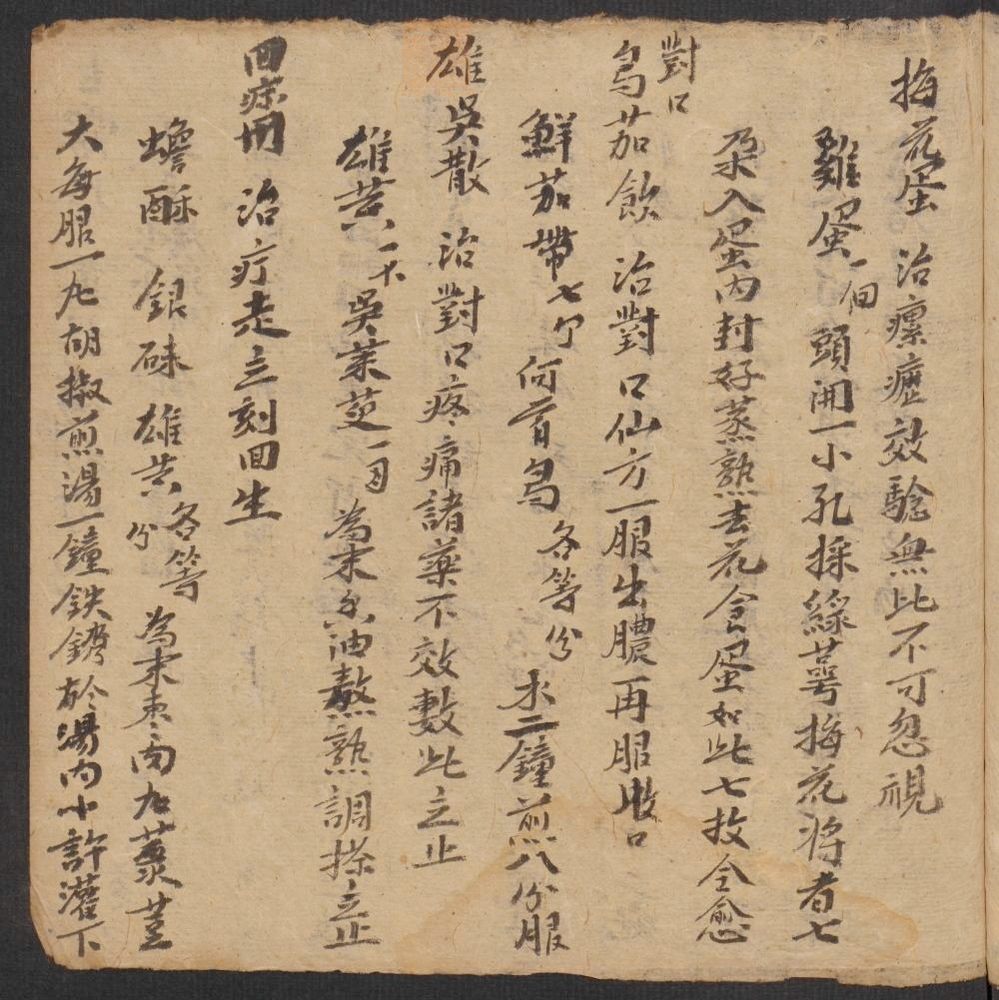 梅花蛋 治瘰癧效驗無比不可忽視
雞蛋一個頭開一小孔採綠萼梅花將者七
朶入蛋內封好蒸熟去花食蛋如此七枚全愈
對口
烏茄飲 治對口仙方一服出膿再服收口
鮮茄帶七個何首烏各等份水二鐘煎八分服
雄吳散 治對口疼痛諸藥不效敷此立止
雄黃一 吳茱萸 為末香油熬熟調搽立止
回 治疔走立刻回生
蟾酥 銀硃 雄黃各等分為末棗肉丸菉荳
大每服一丸胡椒煎湯一鐘鉄銹於湯內少許灌下